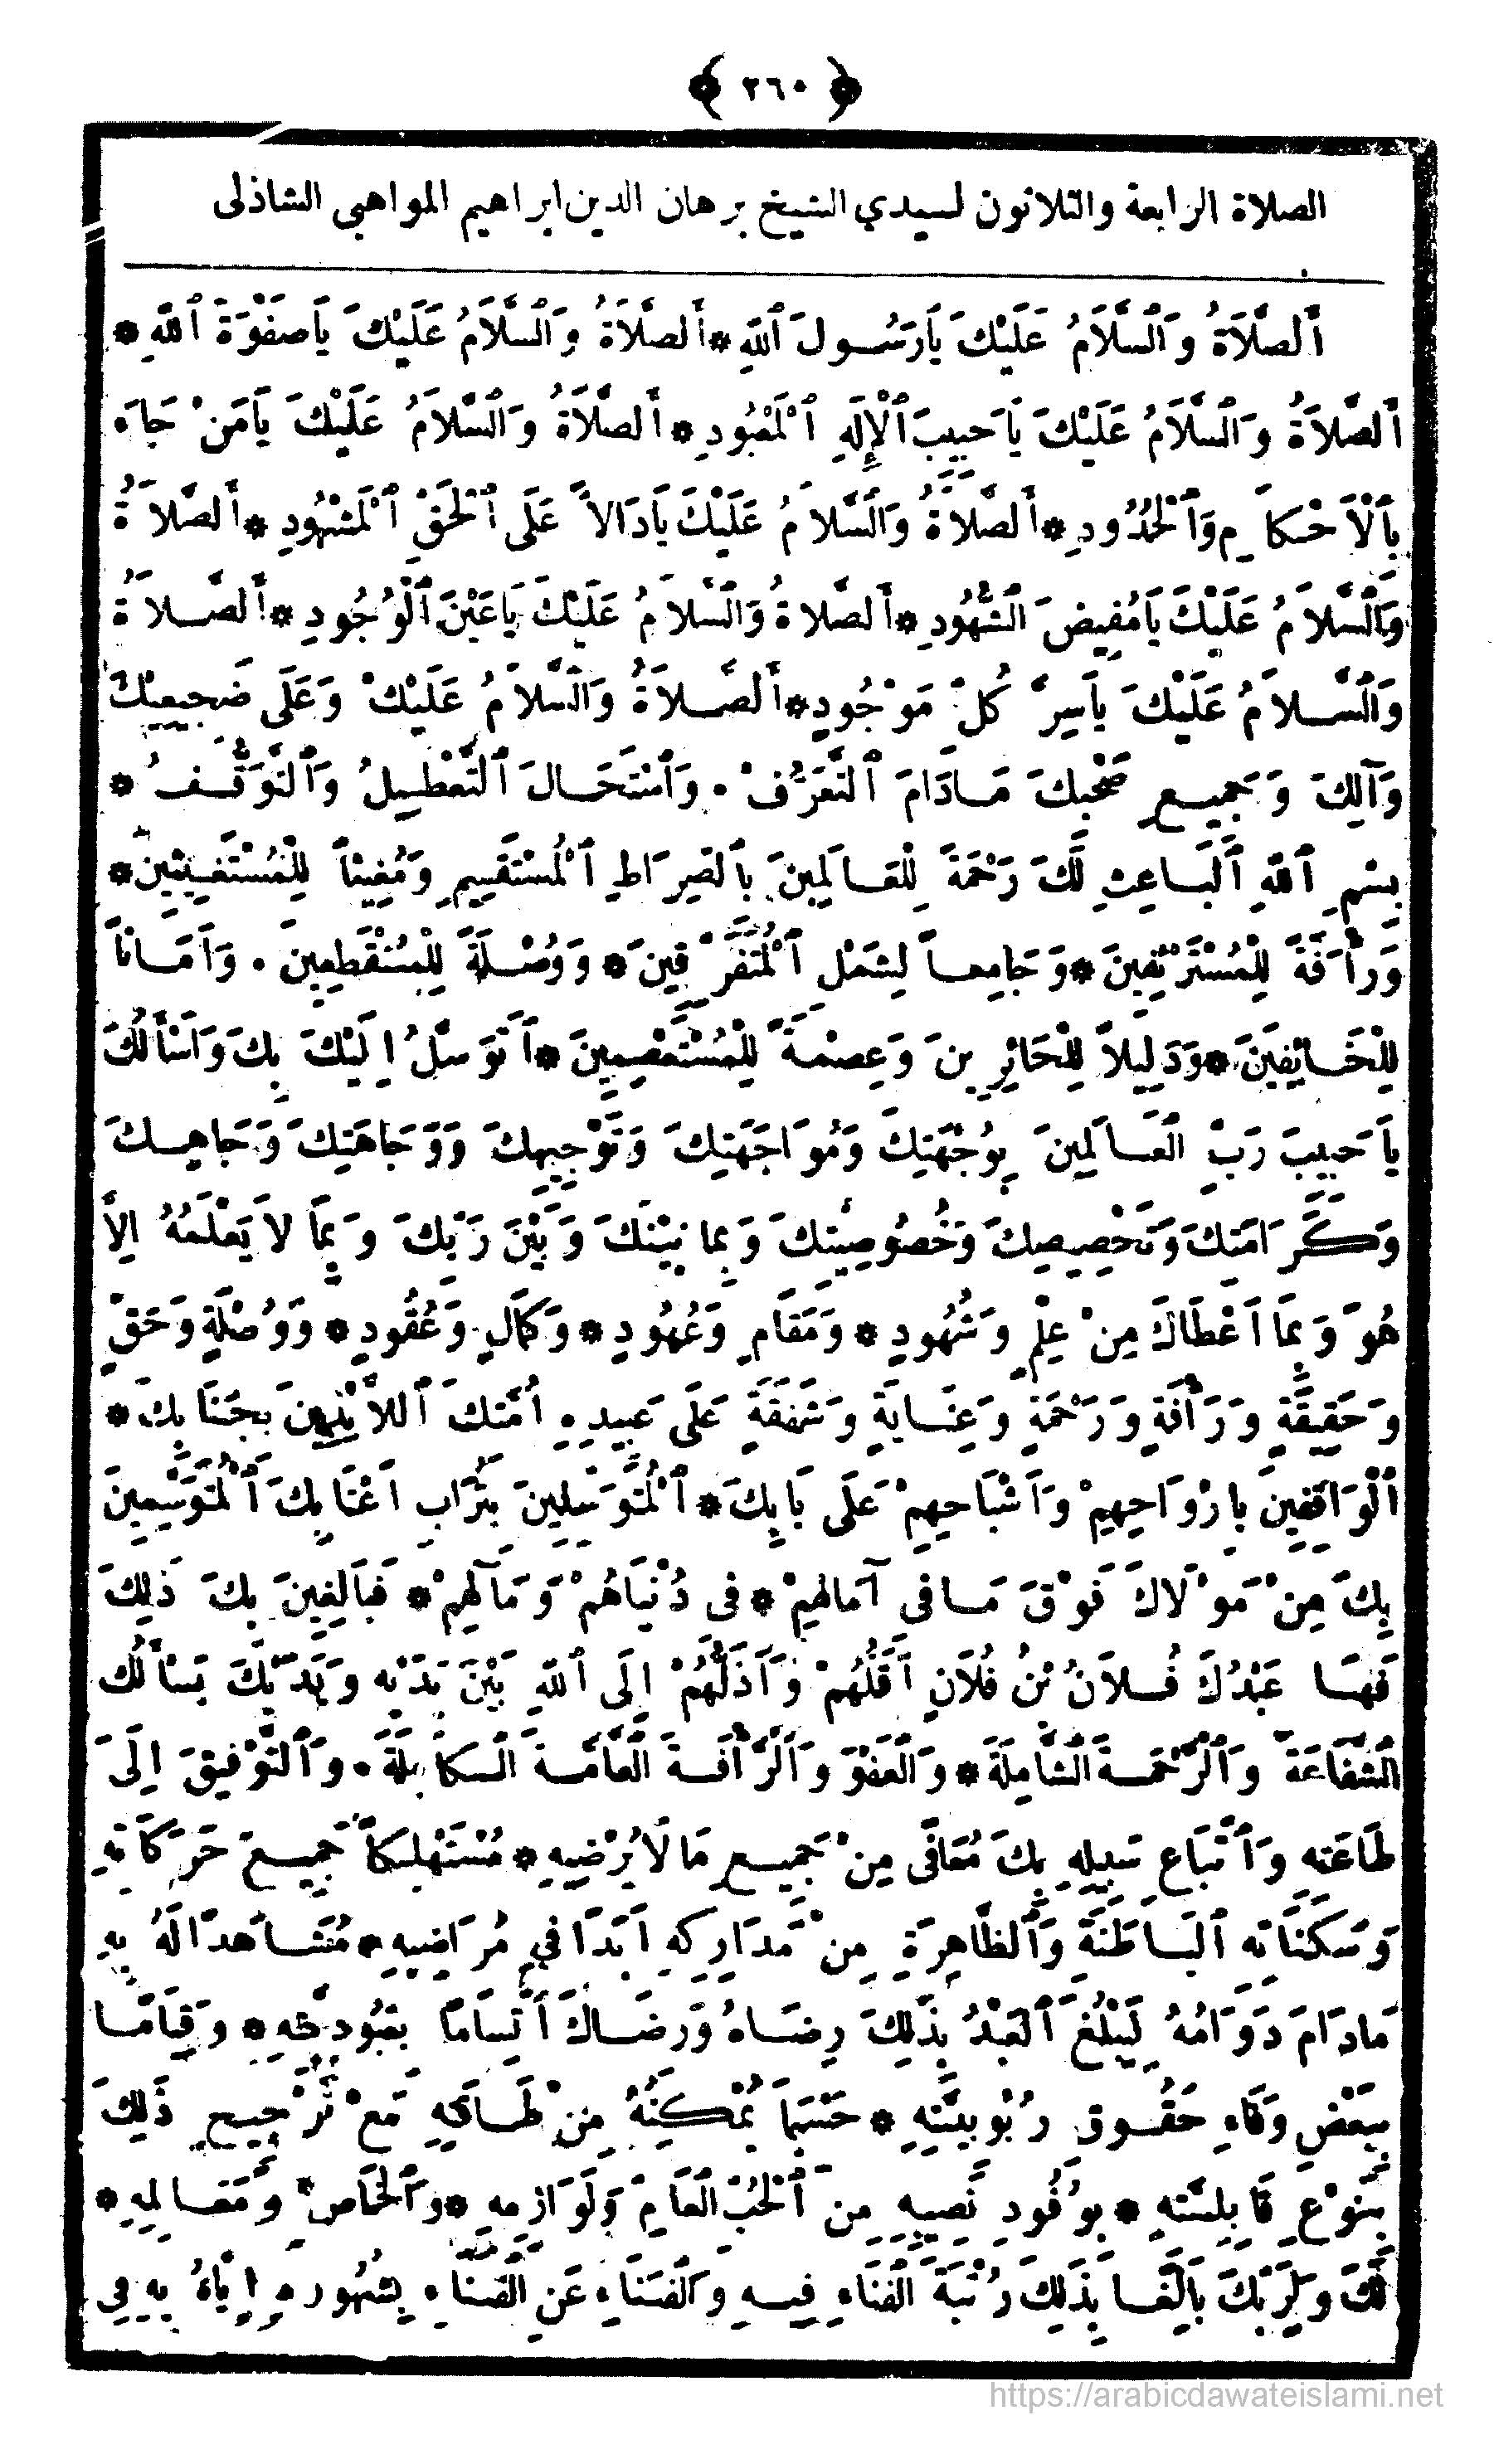 ﴿ ٢٦٠ ﴾
الصلاة الرابعة والثلاثون لسيدي الشيخ برهان الدين ابراهيم المواهبى الشاذلى
أَلصَّلاَةُ وَٱلسَّلاَمُ عَلَيْكَ يَارَسُولَ ٱللهِ * أَلصَّلاَةُ وَٱلسَّلاَمُ عَلَيْكَ يَاصَفْوَةَ ٱللهِ *
أَلصَّلاَةُ وَٱلسَّلاَمُ عَلَيْكَ يَاحَبِيبَ ٱلْإِلَهِ ٱلْمَعْبُودِ * أَلصَّلاَةُ وَٱلسَّلاَمُ عَلَيْكَ يَامَنْ جَاءَ
بِٱلْأَحْكَامِ وَٱلْحُدُودِ * أَلصَّلاَةُ وَٱلسَّلاَمُ عَلَيْكَ يَادَالاًّ عَلَى ٱلْحَقِّ ٱلْمَشْهُودِ * أَلصَّلاَةُ
وَٱلسَّلاَمُ عَلَيْكَ يَامُفِيضَ ٱلشُّهُودِ * أَلصَّلاَةُ وَٱلسَّلاَمُ عَلَيْكَ يَاعَيْنَ ٱلْوُجُودِ * أَلصَّلاَةُ
وَٱلسَّلاَمُ عَلَيْكَ يَاسِرَّ كُلِّ مَوْجُودٍ * أَلصَّلاَةُ وَٱلسَّلاَمُ عَلَيْكَ وَعَلَى ضَجِيعَيْكَ
وَآلِكَ وَجَمِيعِ صَحْبِكَ مَادَامَ ٱلتَّعَرُّفُ . وَٱسْتَحَالَ ٱلتَّعْطِيلُ وَٱلتَّوَقُّفُ *
بِسْمِ ٱللهِ ٱلْبَاعِثِ لَكَ رَحْمَةً لِلْعَالَمِينَ بِٱلصِّرَاطِ ٱلْمُسْتَقِيمِ وَمُغِيثاً لِلْمُسْتَغِيثِينَ *
وَرَأْفَةً لِلْمُسْتَرْئِفِينَ * وَجَامِعاً لِشَمْلِ ٱلْمُتَفَرِّقِينَ * وَوُصْلَةً لِلْمُنْقَطِعِينَ . وَأَمَاناً
لِلْخَائِفِينَ * وَدَلِيلاً لِلْحَائِرِينَ وَعِصْمَةً لِلْمُسْتَعْصِمِينَ * أَتَوَسَّلُ اِلَيْكَ بِكَ وَاَسْأَلُكَ
يَاحَبِيبَ رَبِّ ٱلْعَالَمِينَ بِوُجْهَتِكَ وَمُوَاجَهَتِكَ وَتَوْجِيهِكَ وَوَجَاهَتِكَ وَجَاهِكَ
وَكَرَامَتِكَ وَتَخْصِيصِكَ وَخُصُوصِيَّتِكَ وَبِمَا بَيْنَكَ وَبَيْنَ رَبِّكَ وَبِمَا لاَيَعْلَمُهُ اِلاَّ
هُوَ وَبِمَا اَعْطَاكَ مِنْ عِلْمٍ وَشُهُودٍ * وَمَقَامٍ وَعُهُودٍ * وَكَمَالٍ وَعُقُودٍ * وَوُصْلَةٍ وَحَقٍّ
وَحَقِيقَةٍ وَرَأْفَةٍ وَرَحْمَةٍ وَعِنَايَةٍ وَشَفَقَةٍ عَلَى عَبِيدِهِ اُمَّتِكَ ٱللاَّئِذِينَ بِجَنَابِكَ *
ٱلْوَاقِفِينَ بِاَرْوَاحِهِمْ وَاَشْبَاحِهِمْ عَلَى بَابِكَ * ٱلْمُتَوَسِّلِينَ بِتُرَابِ اَعْتَابِكَ ٱلْمُتَوَسِّمِينَ
بِكَ مِنْ مَوْلَاكَ فَوْقَ مَافى آمَالِهِمْ * فى دُنْيَاهُمْ وَمَآلِهِمْ * فَبَالِغِينَ بِكَ ذَلِكَ
فَهَا عَبْدُكَ فُلاَنُ بْنُ فُلاَنٍ اَقَلُّهُمْ وَاَذَلُّهُمْ اِلَى ٱللهِ بَيْنَ يَدَيْهِ وَيَدَيْكَ يَسْأَلُكَ
ٱلشَّفَاعَةَ وَٱلرَّحْمَةَ ٱلشَّامِلَةَ * وَٱلْعَفْوَ وَٱلرَّأْفَةَ ٱلْعَامَّةَ ٱلْكَامِلَةَ . وَٱلتَّوْفِيقَ اِلَى
طَاعَتِهِ وَٱتِّبَاعِ سَبِيلِهِ بِكَ مُعَافًى مِنْ جَمِيعِ مَالَايُرْضِيهِ * مُسْتَهْلِكاً جَمِيعَ حَرَكَاتِهِ
وَسَكَنَاتِهِ ٱلْبَاطِنَةِ وَٱلظَّاهِرَةِ مِنْ مَدَارِكِهِ اَبَدًا فِي مَرَاضِيهِ * مُشَاهَدًا لَهُ بِهِ
مَادَامَ دَوَامُهُ لِيَبْلُغَ ٱلْعَبْدُ بِذَلِكَ رِضَاهُ وَرِضَاكَ اَتِّسَامًا بِعُبُودِيَّتِهِ * وَقِيَامًا
بِبَعْضِ وَفَاءِ حَقُوقِ رُبُوبِيَّتِهِ * حَسْبَمَا يُمْكِنُهُ مِنْ طَاقَتِهِ مَعْ تَرْجِيحِ ذَلِكَ
بِنَوْعِ قَابِلِيَّتِهِ * بِوُفُودِ نَصِيبِهِ مِنَ ٱلْحُبِّ ٱلْعَامِّ وَلَوَازِمِهِ * وَٱلْخَاصِّ وَمَعَالِمِهِ *
لَكَ وَلِرَبِّكَ بَالِغًا بِذَلِكَ رُتْبَةَ ٱلْفَنَاءِ فِيهِ وَٱلْفَنَاءِ عَنِ ٱلْفَنَاءِ بِشُهُودِهِ اِيَّاهُ بِهِ فِى
https://arabicdawateislami.net